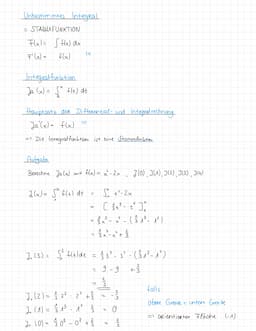 Unbestimmtes Integral
= STAMMFUNKTION
F(x) = ∫ f(x) dx
F'(x) = f(x)
Integralfunktion
Ja(x) = ∫ f(x) dx
Hauptsatz der Differential- und Integralrechnung
Ja'(x) = f(x)
=> Die Integralfunktion ist eine Stammfunktion
Aufgabe
Berechne Ja(x) mit f(x) = x² - 2x
J₁(x) = ∫ f(t) dt = ∫ t² - 2t
= [⅓t³ - t²]
= ⅓x³ - x² - (⅓1³ - 1²)
= ⅓x³ - x² + ⅔
J₁(3) = ∫ f(t) dt = ⅓3³ - 3² - (⅓1³ - 1²)
= 9 - 9 + ⅔
= ⅔
J₁(2) = ⅓ 2³ - 2² + ⅔ = -⅔
J₁(1) = ⅓ 1³ - 1² + ⅔ = 0
J₁(0) = ⅓ 0³ - 0² + ⅔ = ⅔
falls
obere Grenze < untere Grenze
=> orientierter Fläche (-1)